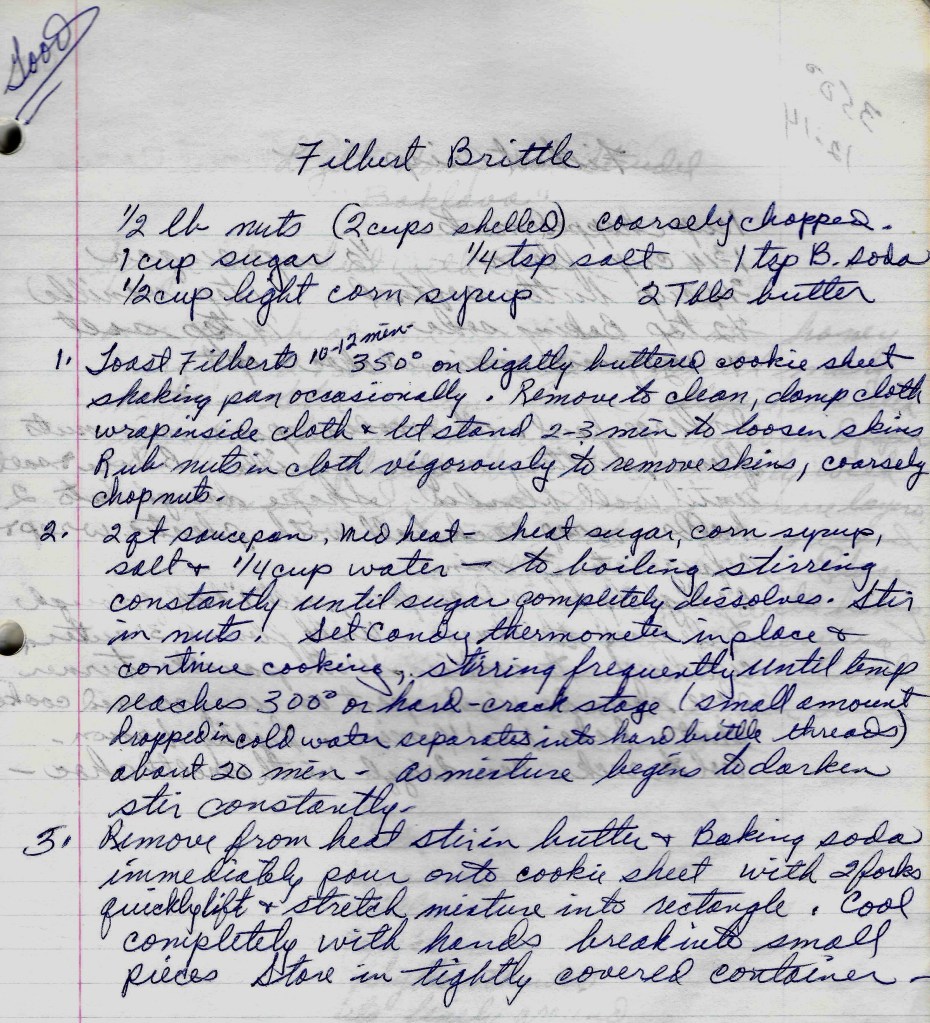 Good
Filbert Brittle
1/2 lb nuts (2 cups shelled) coarsely chopped.
1 cup sugar 1/4 tsp salt 1 tsp B. soda
1/2 cup light corn syrup 2 Tbls butter
1. Toast Filberts 10-12 min- 350° on lightly buttered cookie sheet
shaking pan occasionally. Remove to clean, damp cloth
wrap inside cloth & let stand 2-3 min to loosen skins
Rub nuts in cloth vigorously to remove skins, coarsely
chop nuts.
2. 2 qt saucepan, Med heat - heat sugar, corn syrup,
salt & 1/4 cup water — to boiling stirring
constantly until sugar completely dissolves. Stir
in nuts. Set Candy thermometer in place &
continue cooking, stirring frequently until temp
reaches 300° or hard-crack stage (small amount
dropped in cold water separates into hard brittle threads)
about 20 min - as mixture begins to darken
stir constantly.
3. Remove from heat stir in butter & Baking soda
immediately pour onto cookie sheet with 2 forks
quickly lift & stretch mixture into rectangle. Cool
completely with hands break into small
pieces Store in tightly covered container -
350°
12-14